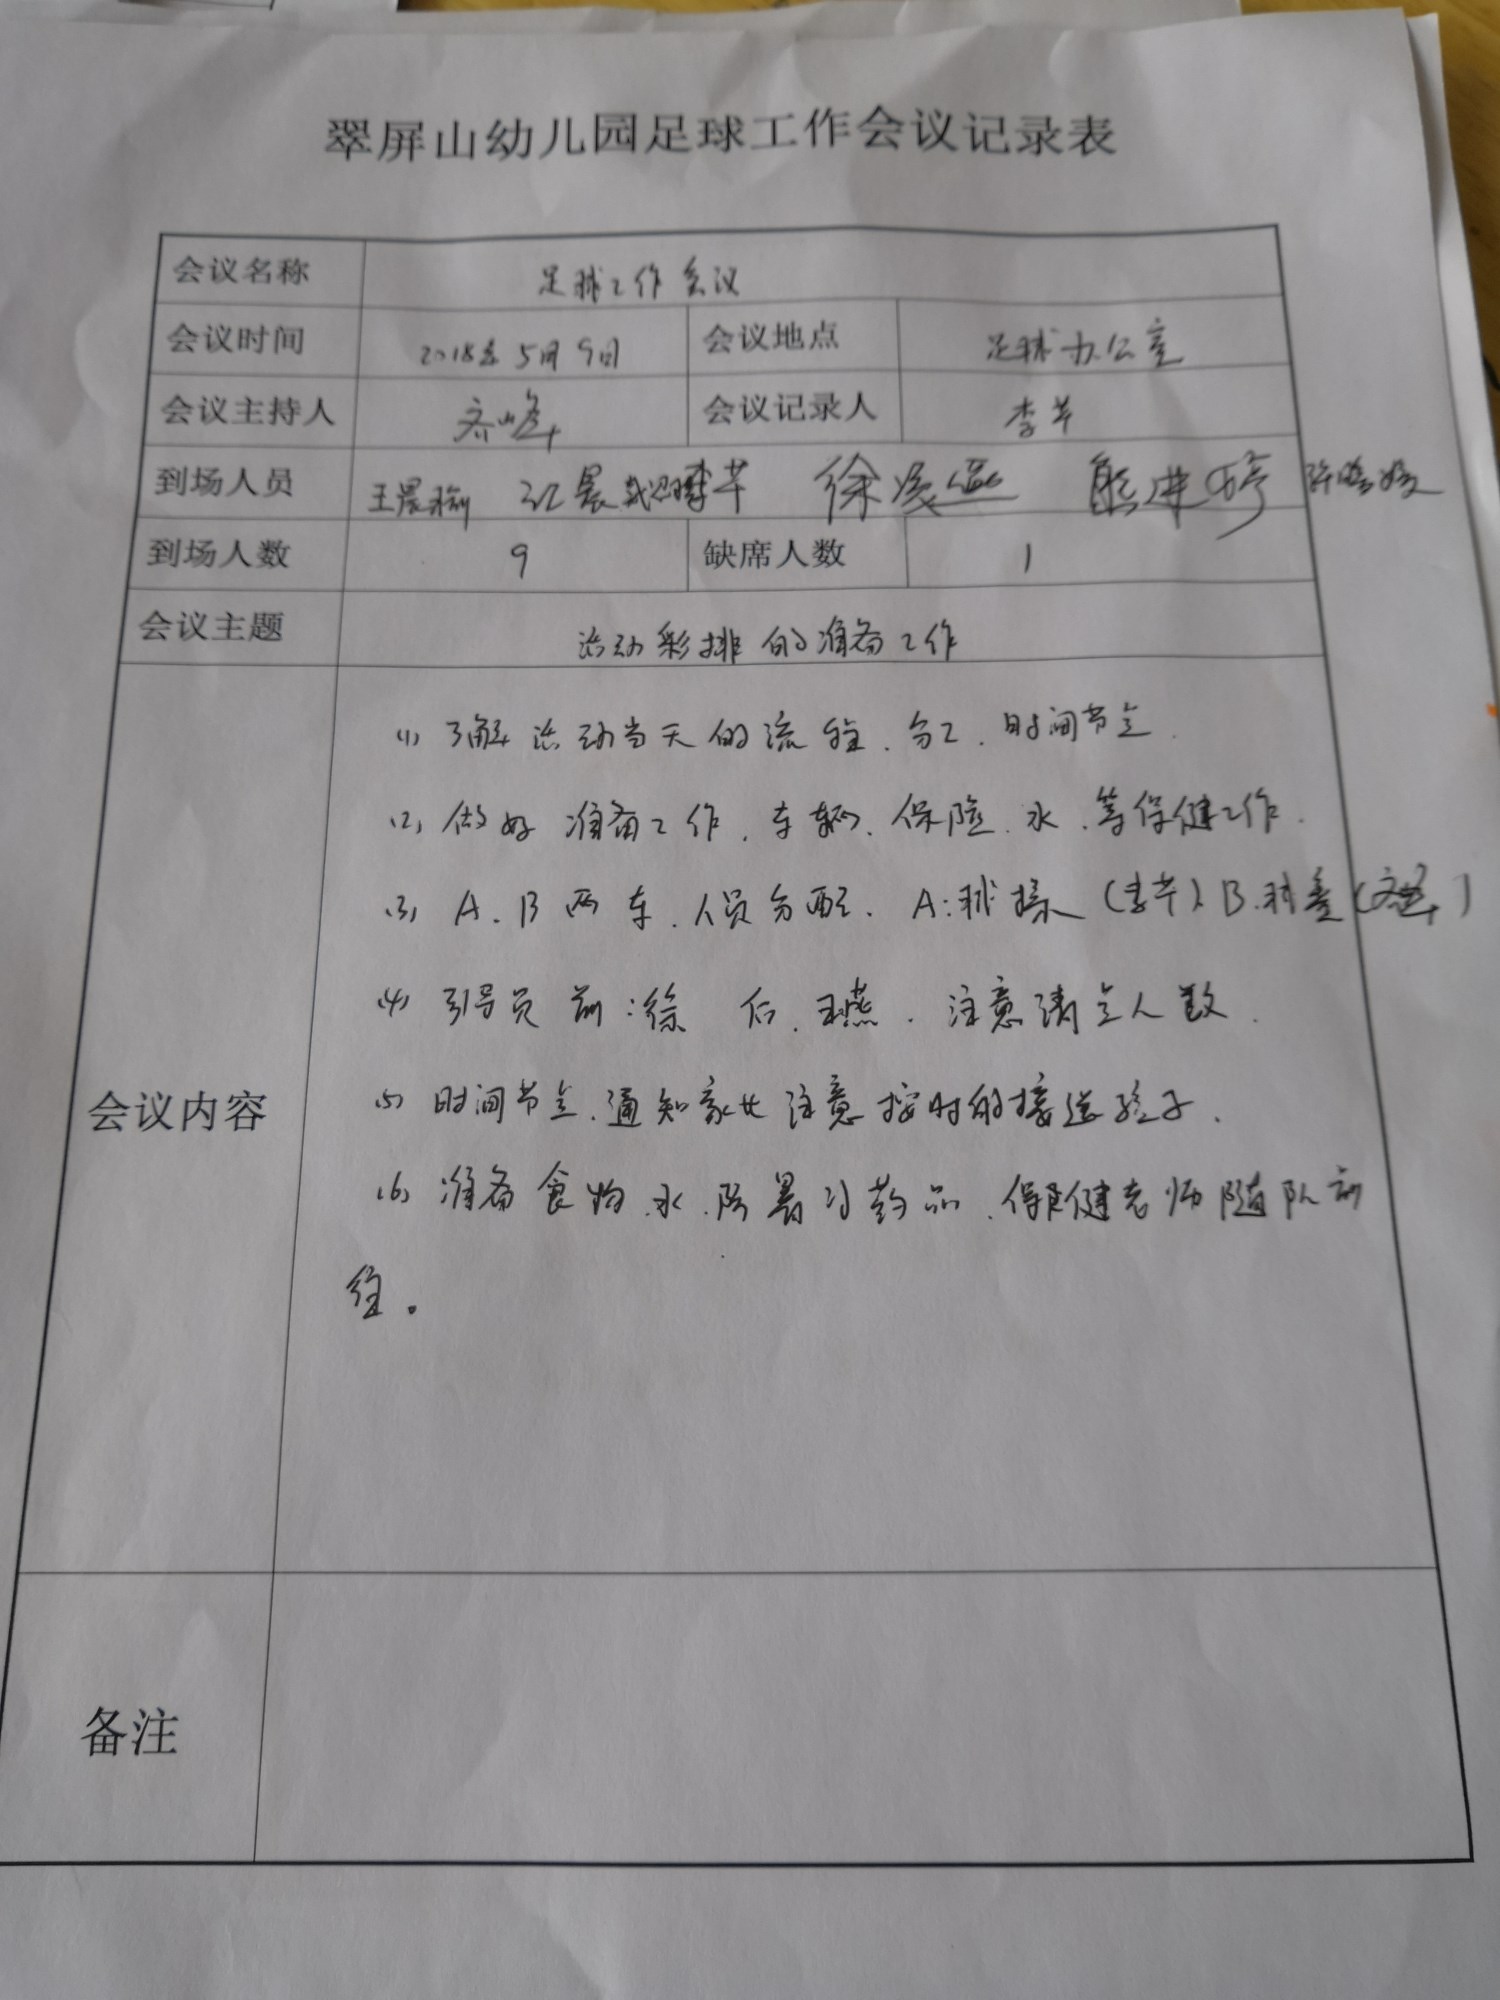 翠屏山幼儿园足球工作会议记录表
会议名称 足球工作会议
会议时间 2018年5月9日 会议地点 足球办公室
会议主持人 齐峰 会议记录人 李芊
到场人员 王晨瑜 江晨 李芊 徐 熊进
到场人数 9 缺席人数 1
会议主题 活动彩排的准备工作
(1) 了解活动当天的流程、分工、时间节点.
(2) 做好准备工作、车辆、保险、水、等保健工作.
(3) A、B两车、人员分配、A:球操(李芊)B.球童(齐峰)
(4) 引导员 前:徐 后、王燕、注意清点人数.
会议内容
(5) 时间节点、通知家长注意按时的接送孩子.
(6) 准备食物、水、防暑小药品、保健老师随队前
往。
备注